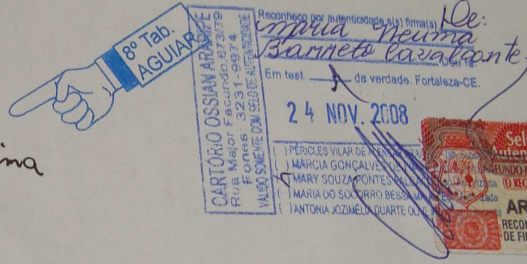 8º Tab.
AGUIAR
CARTÓRIO OSSIAN ARARIPE
Rua Major Facundo, 673/79
Fones: 3231-9974
VALIDO SOMENTE COM SELO DE AUTENTICIDADE
Reconheço por autenticidade a(s) firma(s) De:
Maria Neuma
Barreto Cavalcante
Em test. da verdade. Fortaleza-CE.
24 NOV. 2008
( ) PÉRICLES VILAR DE
( ) MÁRCIA GONÇALVES
( ) MARY SOUZA PONTES
( ) MARIA DO SOCORRO BESSA
( ) ANTONIA JOZIMÉLD DUARTE
ina
Sel
FUNDO
AR
RECON
DE FI